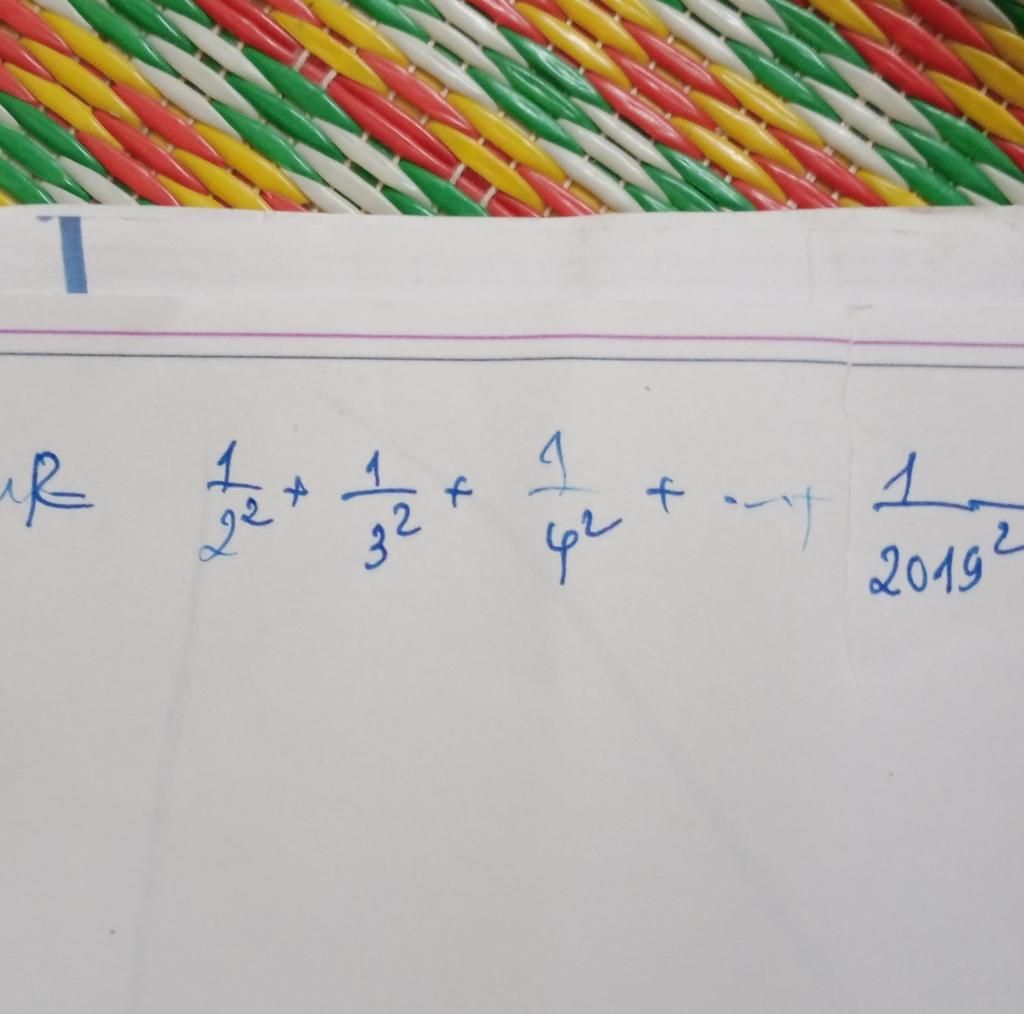 1/2² + 1/3² + 1/4² + ... + 1/2019²